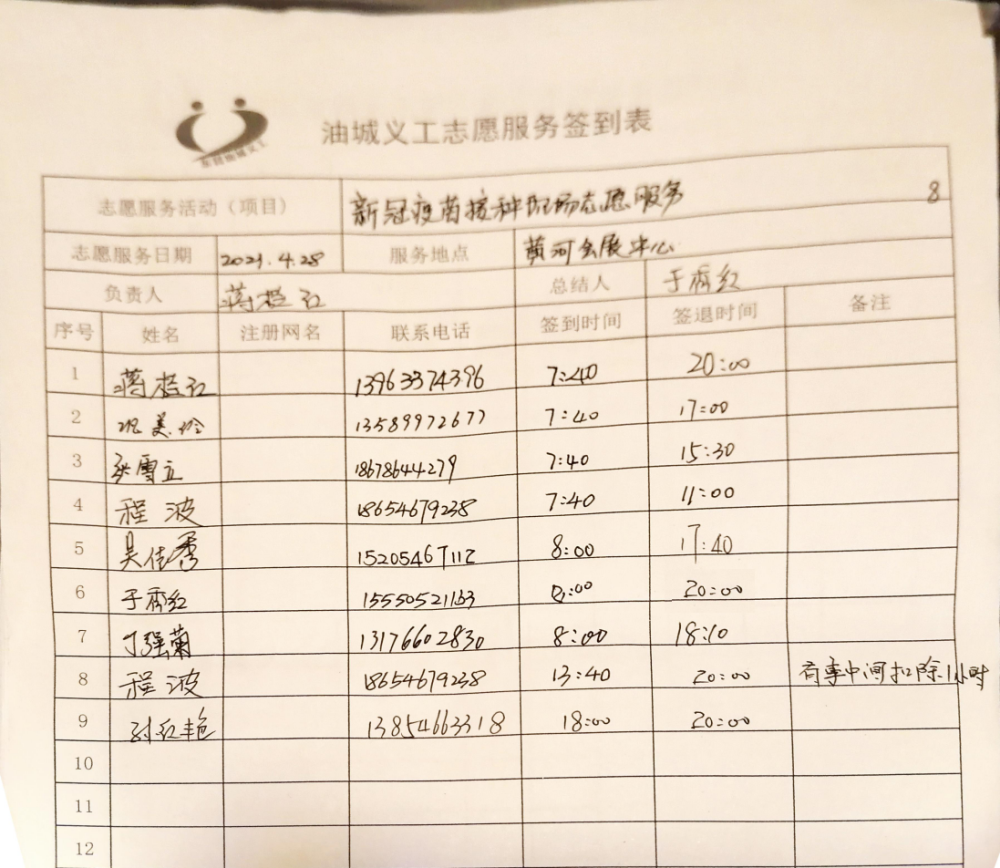 油城义工志愿服务签到表
志愿服务活动（项目） 新冠疫苗接种现场志愿服务 8
志愿服务日期 2021.4.28 服务地点 黄河会展中心
负责人 蒋 红 总结人 于秀红
序号 姓名 注册网名 联系电话 签到时间 签退时间 备注
1 蒋 红 13963374396 7:40 20:00
2 美玲 13589972677 7:40 17:00
3 张雪立 18678644279 7:40 15:30
4 程波 18654679238 7:40 11:00
5 吴佳秀 15205467112 8:00 17:40
6 于秀红 15550521163 20:00
7 丁强菊 13176602830 8:00 18:10
8 程波 18654679238 13:40 20:00 有事中间扣除1小时
9 红艳 13854663318 18:00 20:00
10
11
12